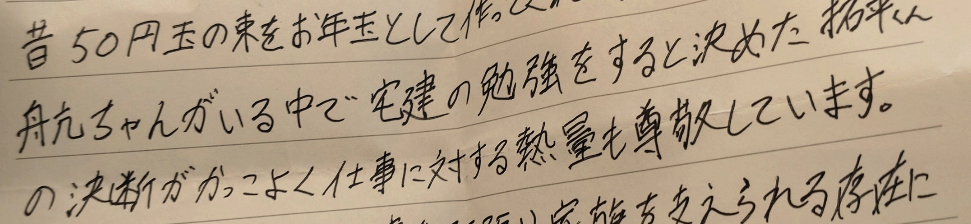 昔50円玉の束をお年玉として作って
航ちゃんがいる中で宅建の勉強をすると決めた拓平くん
の決断がかっこよく仕事に対する熱量も尊敬しています。
家族を支えられる存在に